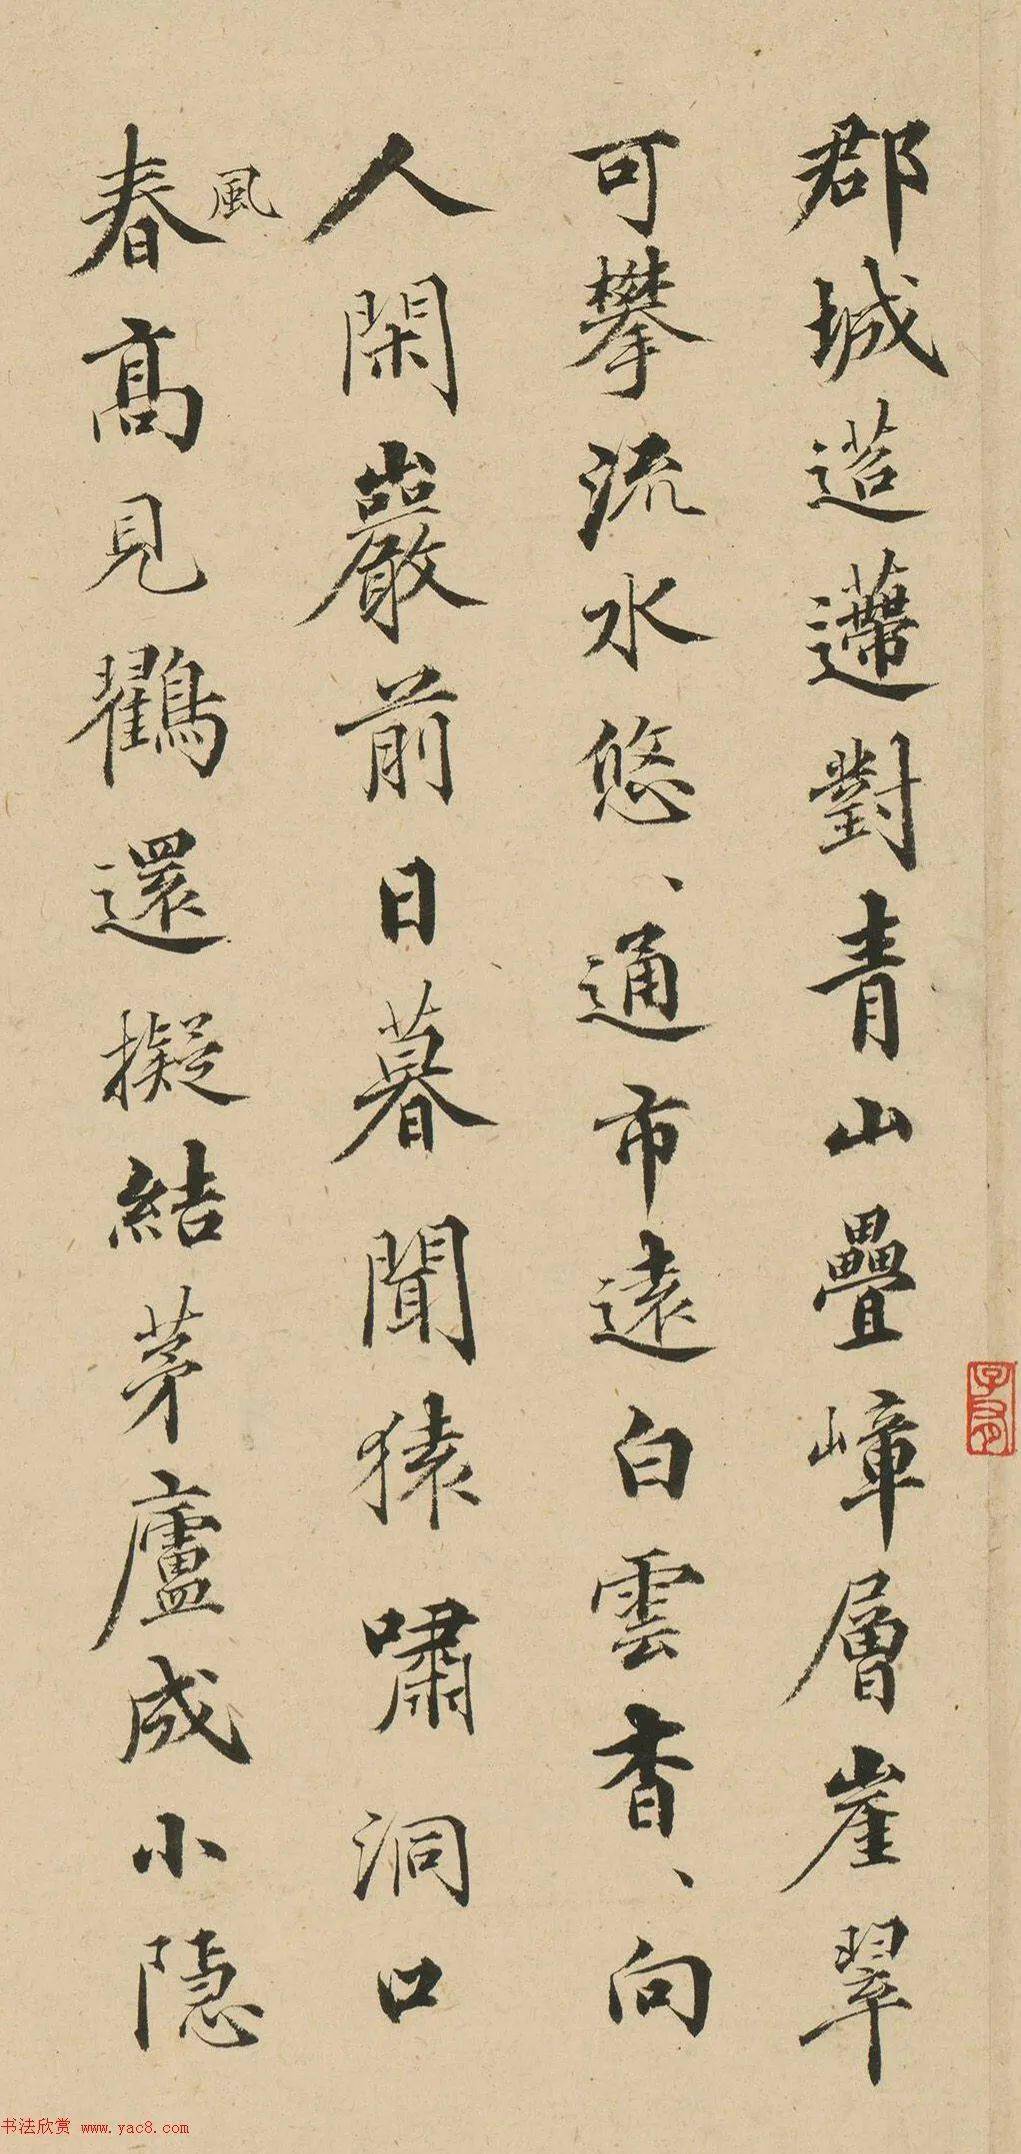 郡城迢遰對青山疊嶂層崖翠
可攀流水悠、通市遠白雲杳、向
人閑巖前日暮聞猿嘯洞口
春高見鸖還擬結茅廬成小隱
風
书法欣赏 www.yac8.com